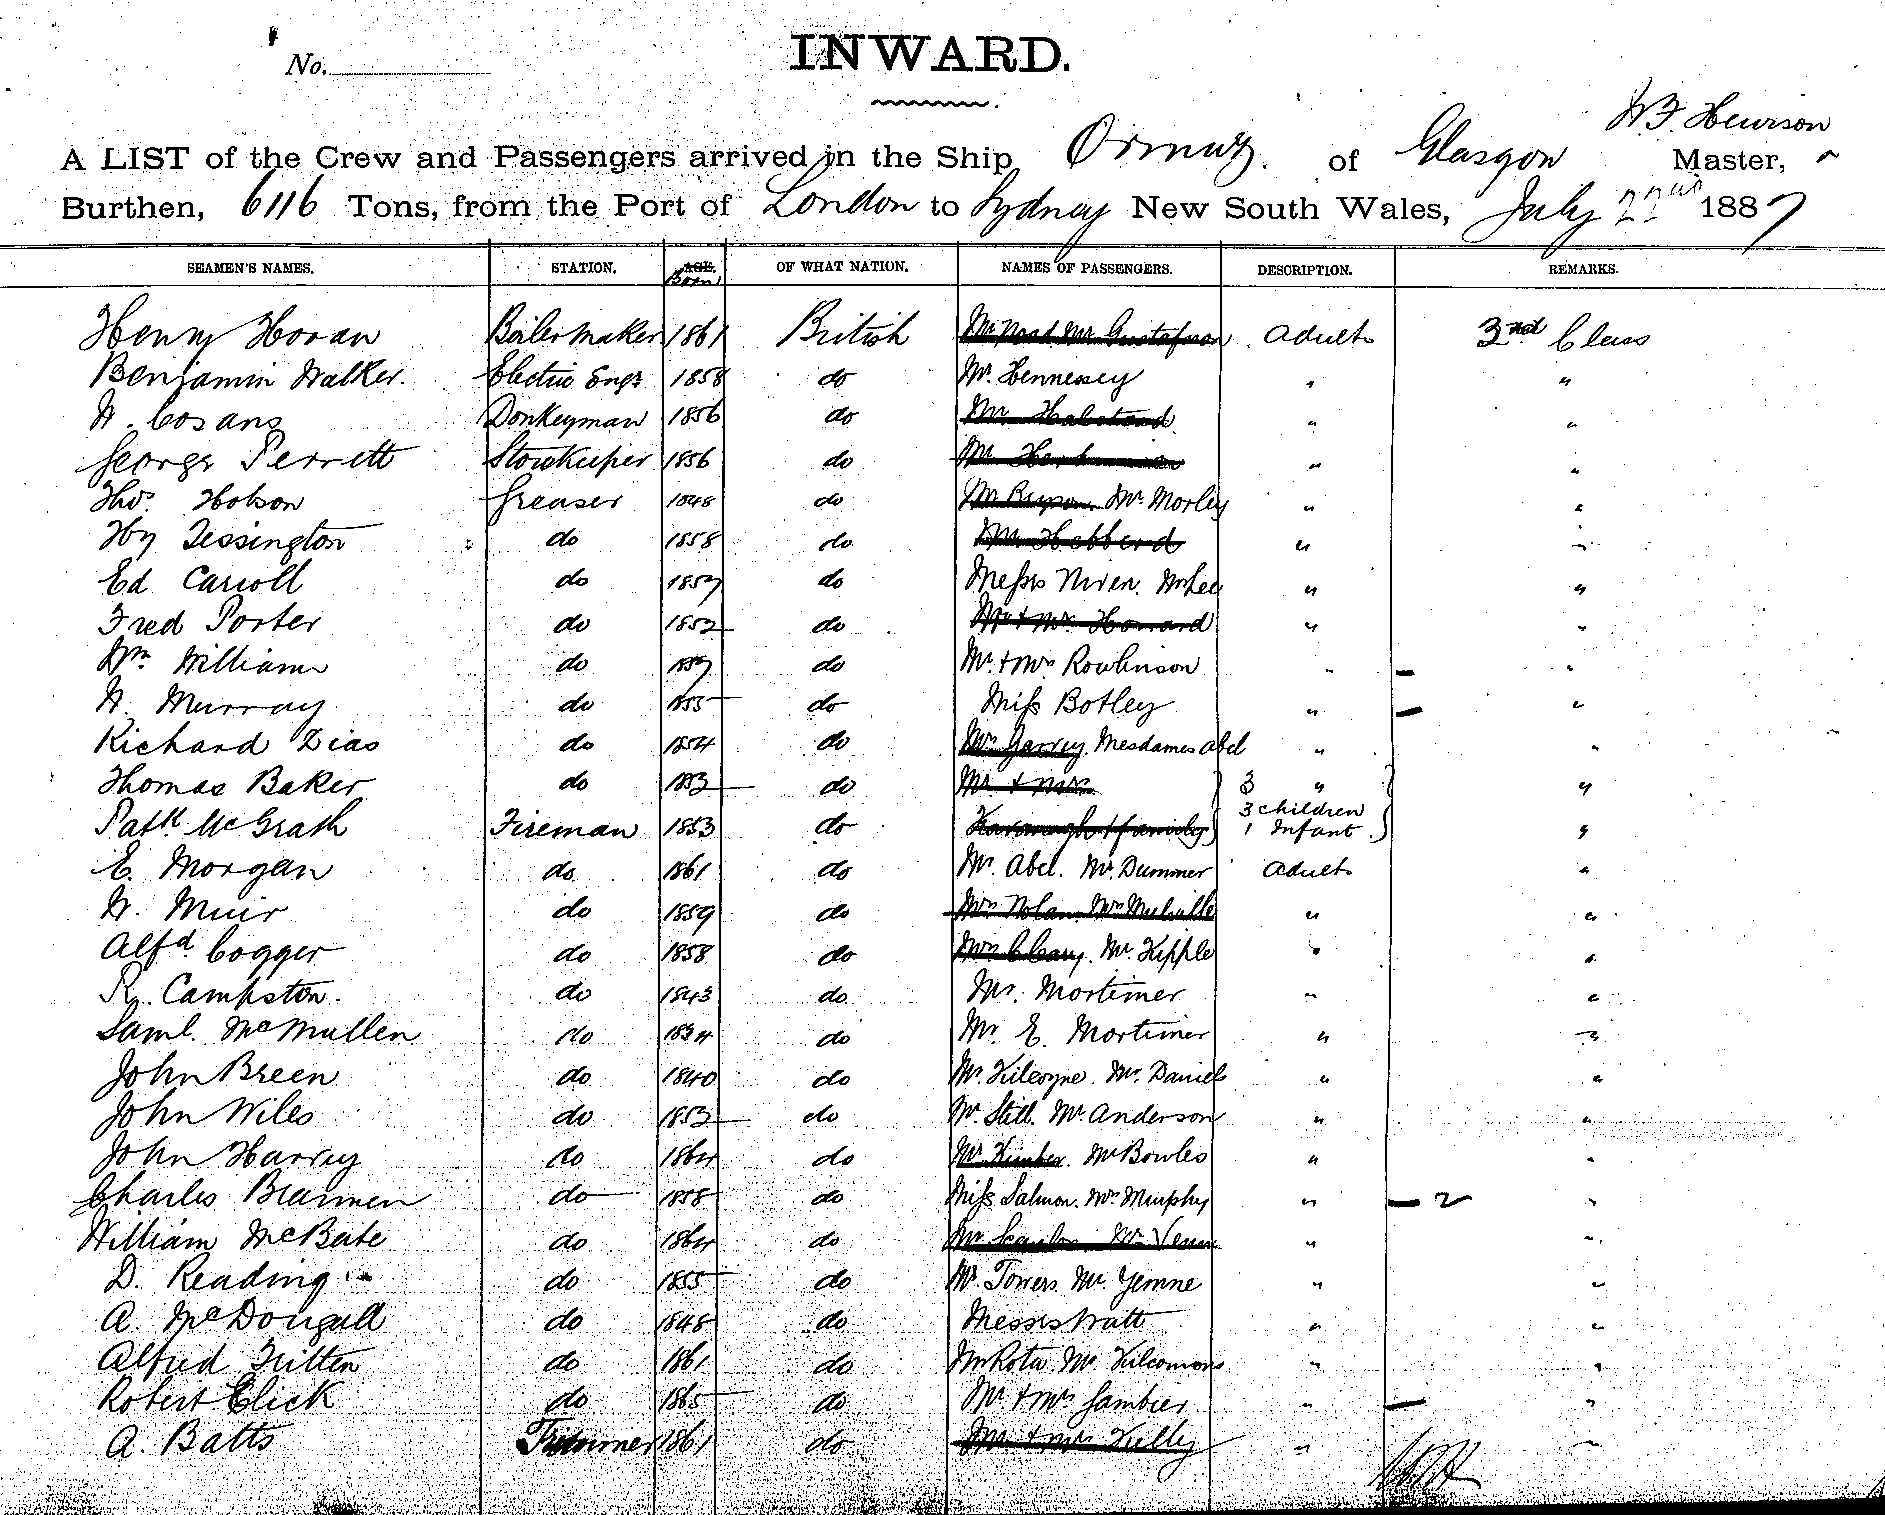 No.
INWARD.
W F. Hewison
A LIST of the Crew and Passengers arrived in the Ship Ormuz. of Glasgow Master,
Burthen, 6116 Tons, from the Port of London to Sydney New South Wales, July 22nd 1887
SEAMEN'S NAMES. STATION. AGE. Born OF WHAT NATION. NAMES OF PASSENGERS. DESCRIPTION. REMARKS.
Henry Horan Boilermaker 1861 British Gustafson Adults 3rd Class
Benjamin Walker. Electric Engr 1858 do Mr. Hennessey " "
W. Cosans Donkeyman 1856 do Mr Halstead " "
George Perrett Storekeeper 1856 do Mr " "
Thos. Hobson Greaser 1848 do Mr Morley " "
Hy Tessington do 1858 do Mr Hebberd " "
Ed Carroll do 1857 do Messrs Niven. McLee " "
Fred Porter do 1852 do Mr & Mrs Howard " "
Wm Williams do 1857 do Mr. & Mrs Rowlinson " "
W. Murray do 1855 do Miss Botley " "
Richard Dias do 1854 do Mrs Garvey. Mesdames Abel " "
Thomas Baker do 1853 do Mr & Mrs 3 " "
Patk McGrath Fireman 1853 do Kavanagh & family 3 children 1 Infant "
E. Morgan do 1861 do Mr Abel. Mr. Dummer Adults "
W. Muir do 1859 do Mrs Nolan. Mrs " "
Alfd. Cogger do 1858 do Mrs Cleary. Mr Kipple " "
R. Campston. do 1843 do Mr. Mortimer " "
Saml. McMullen do 1834 do Mr E. Mortimer " "
John Breen do 1840 do Mr. Kilcoyne. Mr. Daniels " "
John Wiles do 1853 do Mr. Still. Mr. Anderson " "
John Harvey do 1864 do Mr Kimber. Mr Bowles " "
Charles Brannen do 1858 do Miss Salmon. Mrs Murphy " 2 "
William McBate do 1864 do Mr Scanlon Mr Venn " "
D. Reading do 1855 do Mr. Towers. Mr Yemne " "
A. McDougall do 1848 do Messrs Wratt " "
Alfred Tritten do 1861 do Mr Rota. Mr Kilcomons " "
Robert Elick do 1865 do Mr & Mrs Gambier " "
A. Batts Trimmer 1861 do Mr & Mrs Kelly " "